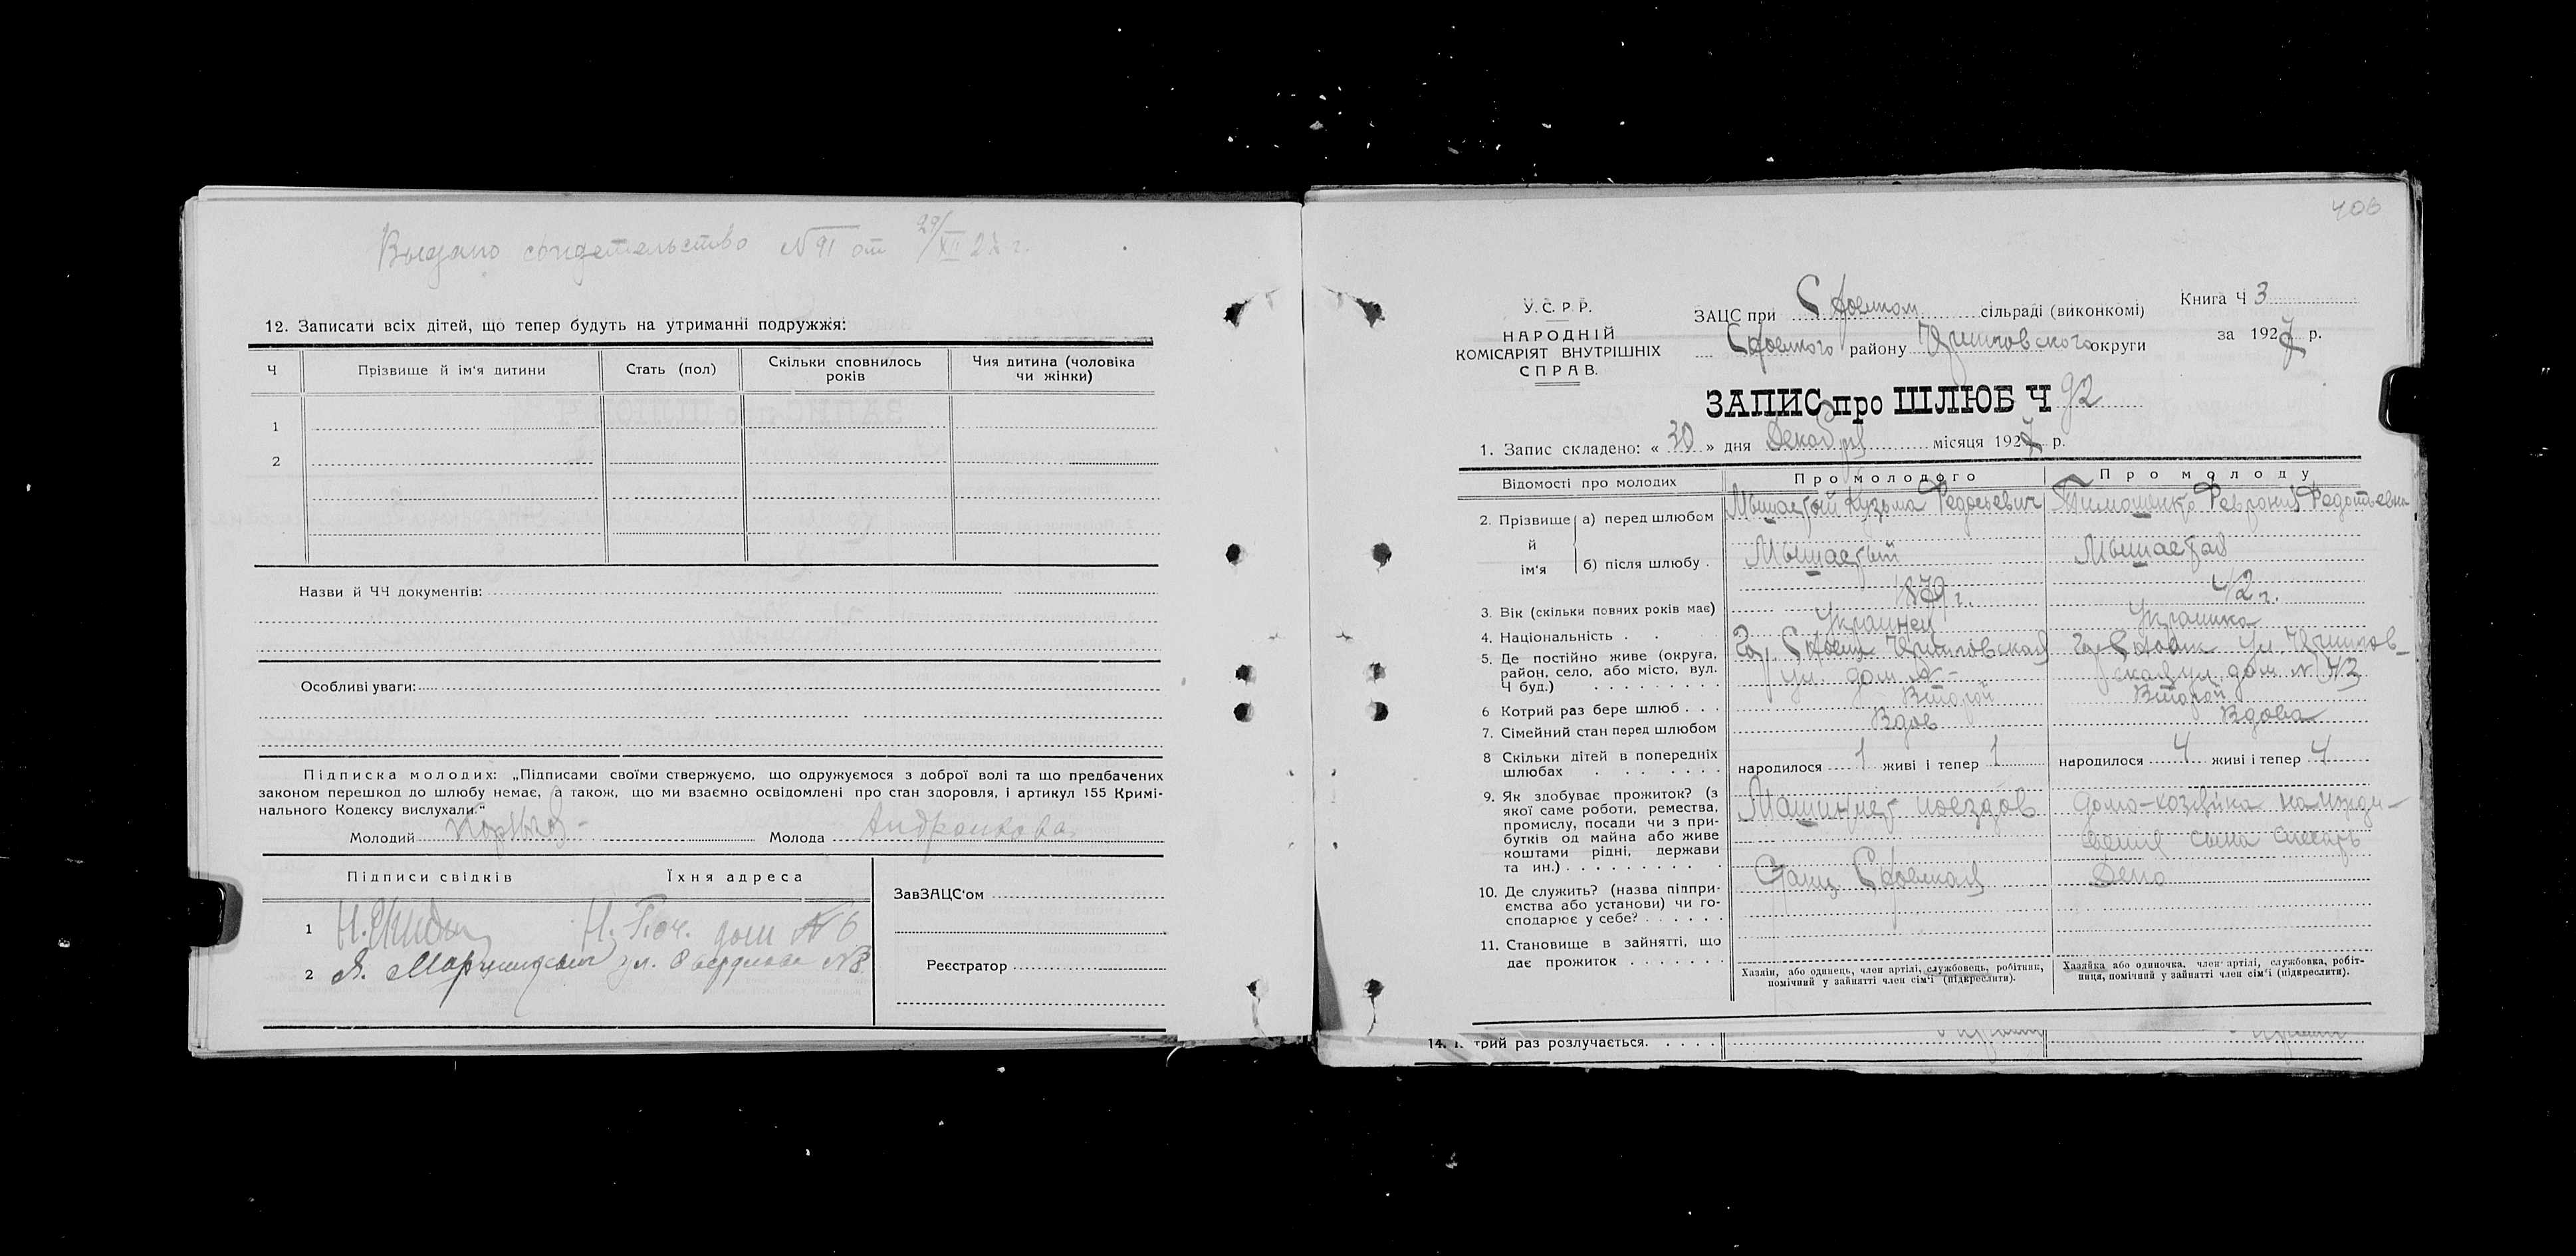 Выдано свидетельство № 91 от 29/XII 27 г.
12. Записати всіх дітей, що тепер будуть на утриманні подружжя:
Ч Прізвище й ім'я дитини Стать (пол) Скільки сповнилось років Чия дитина (чоловіка чи жінки)
1
2
Назви й ЧЧ документів:
Особливі уваги:
Підписка молодих: „Підписами своїми стверджуємо, що одружуємося з доброї волі та що предбачених
законом перешкод до шлюбу немає, а також, що ми взаємно освідомлені про стан здоровля, і артикул 155 Кримі-
нального Кодексу вислухали."
Молодий Молода Андронкова
Підписи свідків Їхня адреса
1 дом № 6
2 Я. ул. №8
ЗавЗАЦС'ом
Реєстратор
406
У.С.Р.Р.
НАРОДНІЙ
КОМІСАРІЯТ ВНУТРІШНІХ
СПРАВ.
ЗАЦС при сільраді (виконкомі)
району округи
Книга Ч 3
за 1927 р.
ЗАПИС про ШЛЮБ Ч 92
1. Запис складено: « 30 » дня Декабря місяця 1927 р.
Відомості про молодих Про молодого Про молоду
2. Прізвище й ім'я а) перед шлюбом Кузьма Федосьевич Феврония Федотьевна
б) після шлюбу
3. Вік (скільки повних років має) 1879 г. 42 г.
4. Національність Украинец Украинка
5. Де постійно живе (округа,
район, село, або місто, вул.
Ч буд.) ул. дом № ул. дом №
6 Котрий раз бере шлюб Второй Второй
7. Сімейний стан перед шлюбом Вдов Вдова
8 Скільки дітей в попередніх
шлюбах народилося 1 живі і тепер 1 народилося 4 живі і тепер 4
9. Як здобуває прожиток? (з
якої саме роботи, ремества,
промислу, посади чи з при-
бутків од майна або живе
коштами рідні, держави
та ин.) Машинист поездов домо-хозяйка на иждивения сына слесарь
10. Де служить? (назва підпри-
ємства або установи) чи го-
сподарює у себе? Станц. Депо
11. Становище в зайнятті, що
дає прожиток
Хазяїн, або одинець, член артілі, службовець, робітник,
помічний у зайнятті член сім'ї (підкреслити).
Хазяйка або одиночка, член артілі, службовка, робіт-
ниця, помічний у зайнятті член сім'ї (підкреслити).
14. трий раз розлучається.